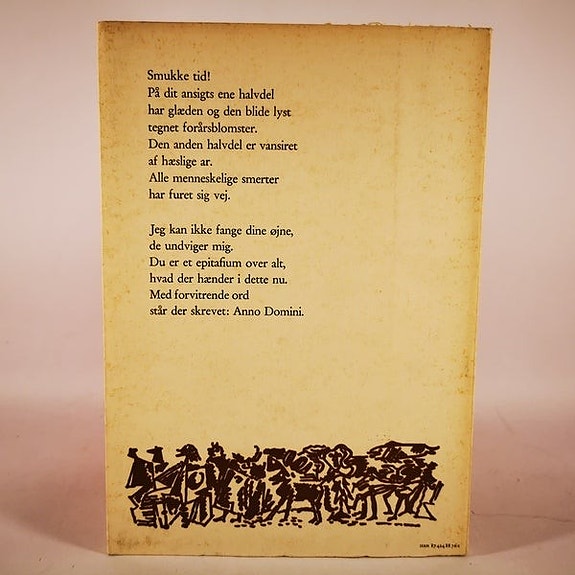 Smukke tid!
På dit ansigts ene halvdel
har glæden og den blide lyst
tegnet forårsblomster.
Den anden halvdel er vansiret
af hæslige ar.
Alle menneskelige smerter
har furet sig vej.
Jeg kan ikke fange dine øjne,
de undviger mig.
Du er et epitafium over alt,
hvad der hænder i dette nu.
Med forvitrende ord
står der skrevet: Anno Domini.
ISBN